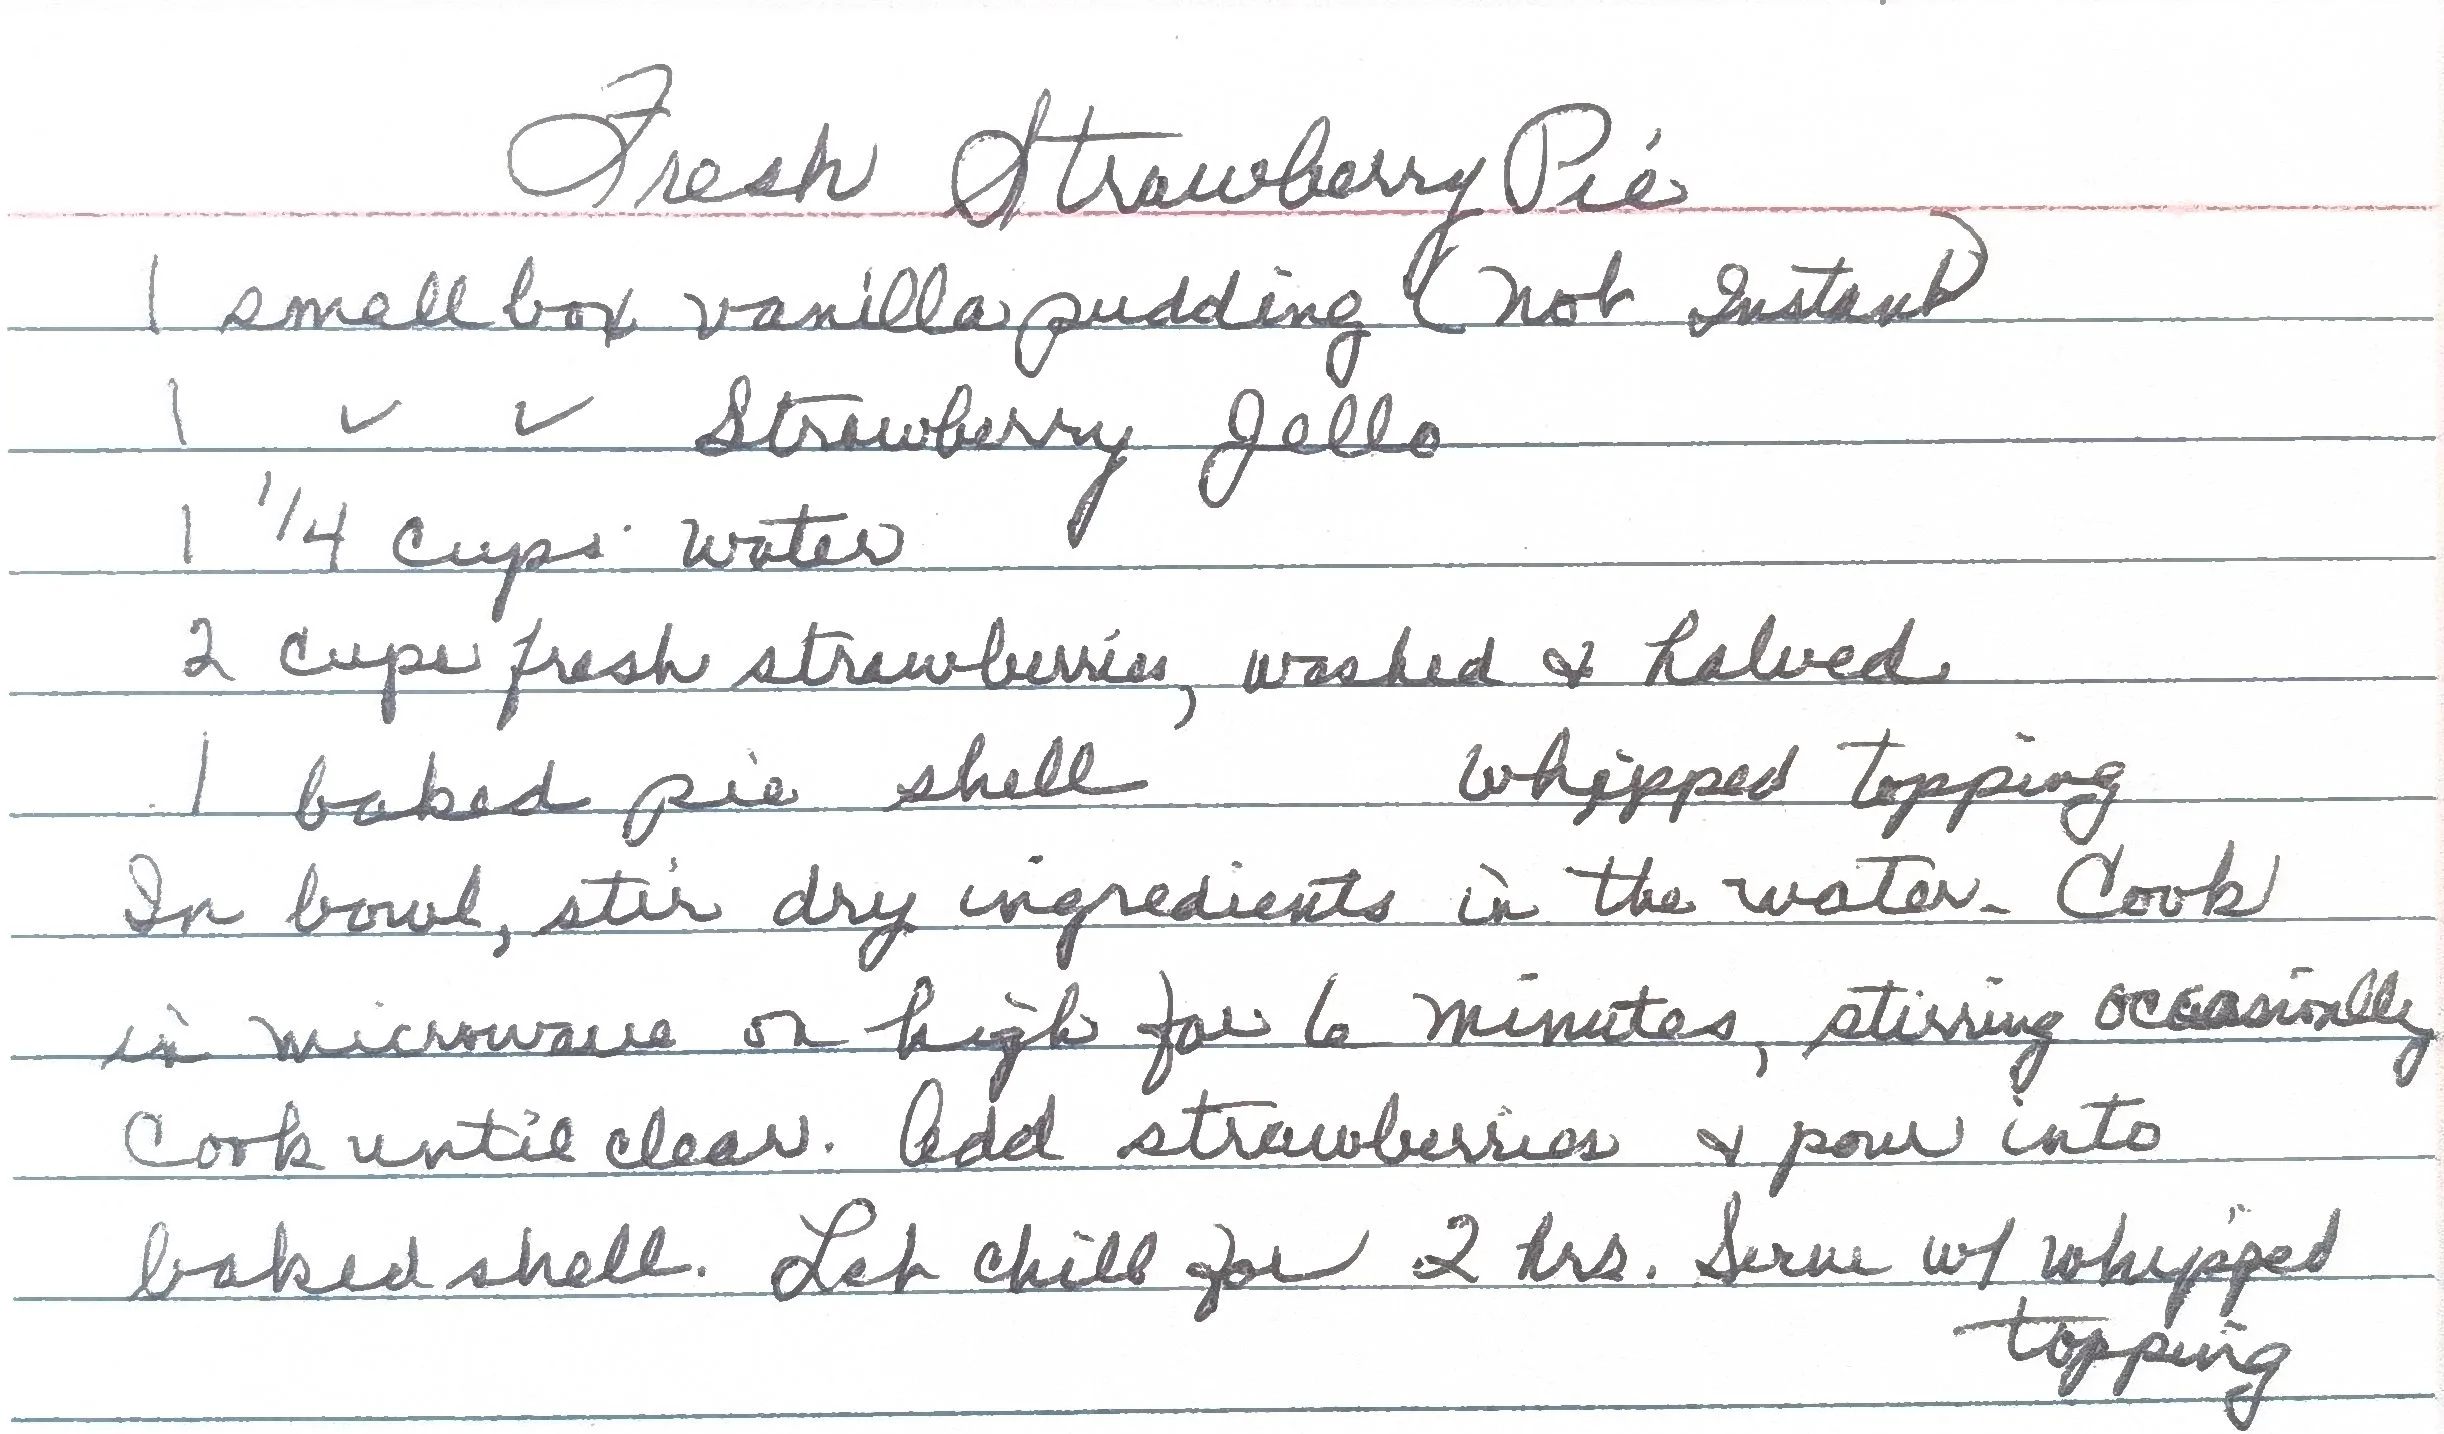 Fresh Strawberry Pie
1 small box vanilla pudding (not Instant)
1 ✓ ✓ Strawberry Jello
1 1/4 cups water
2 cups fresh strawberries, washed & halved
1 baked pie shell whipped topping
In bowl, stir dry ingredients in the water. Cook
in microwave on high for 6 minutes, stirring occasionally
Cook until clear. Add strawberries & pour into
baked shell. Let chill for 2 hrs. Serve w/ whipped
topping